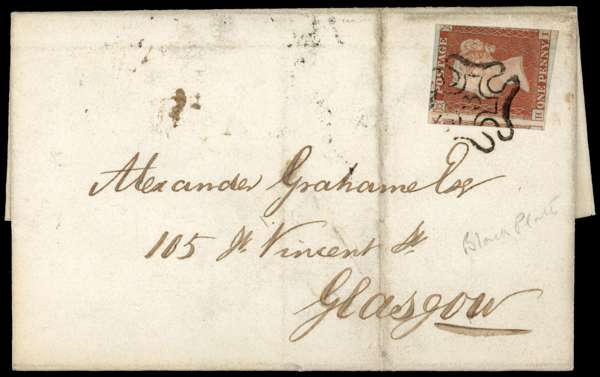 POSTAGE
ONE PENNY
Alexander Grahame Esq
105 St Vincent St
Glasgow
Black Plate